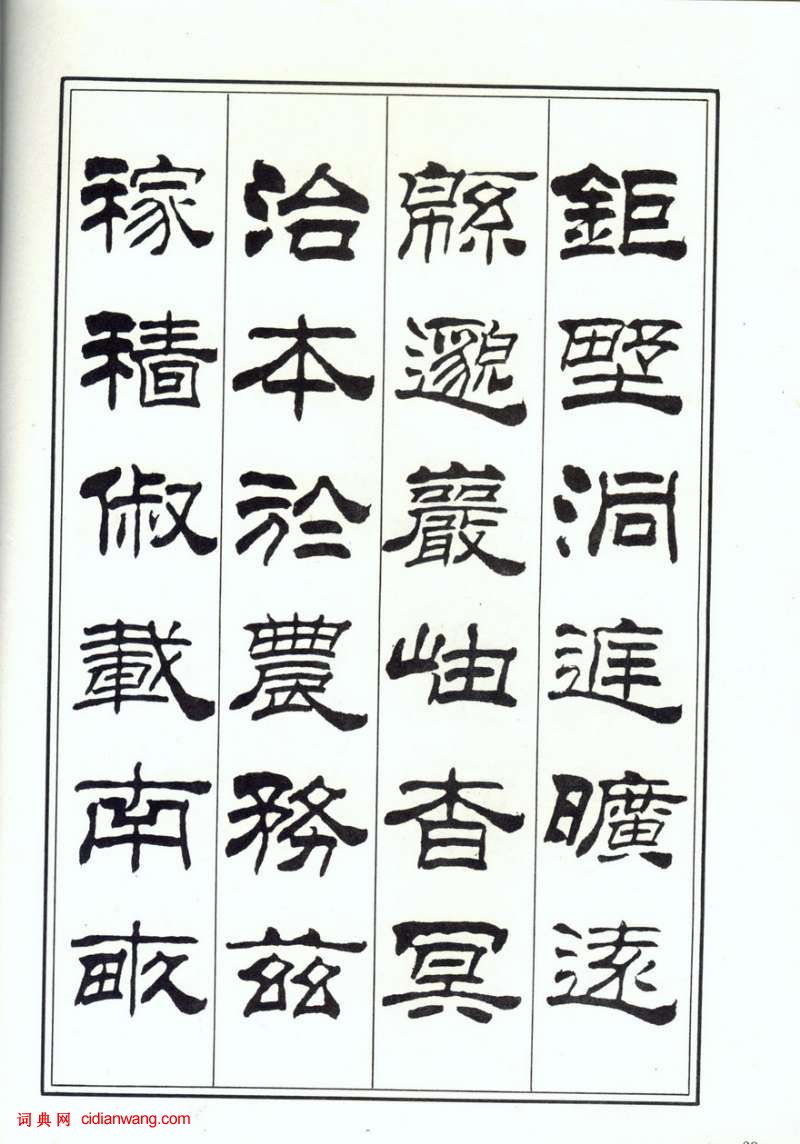 鉅野洞庭曠遠
緜邈巖岫杳冥
治本於農務茲
稼穡俶載南畝
词典网 cidianwang.com